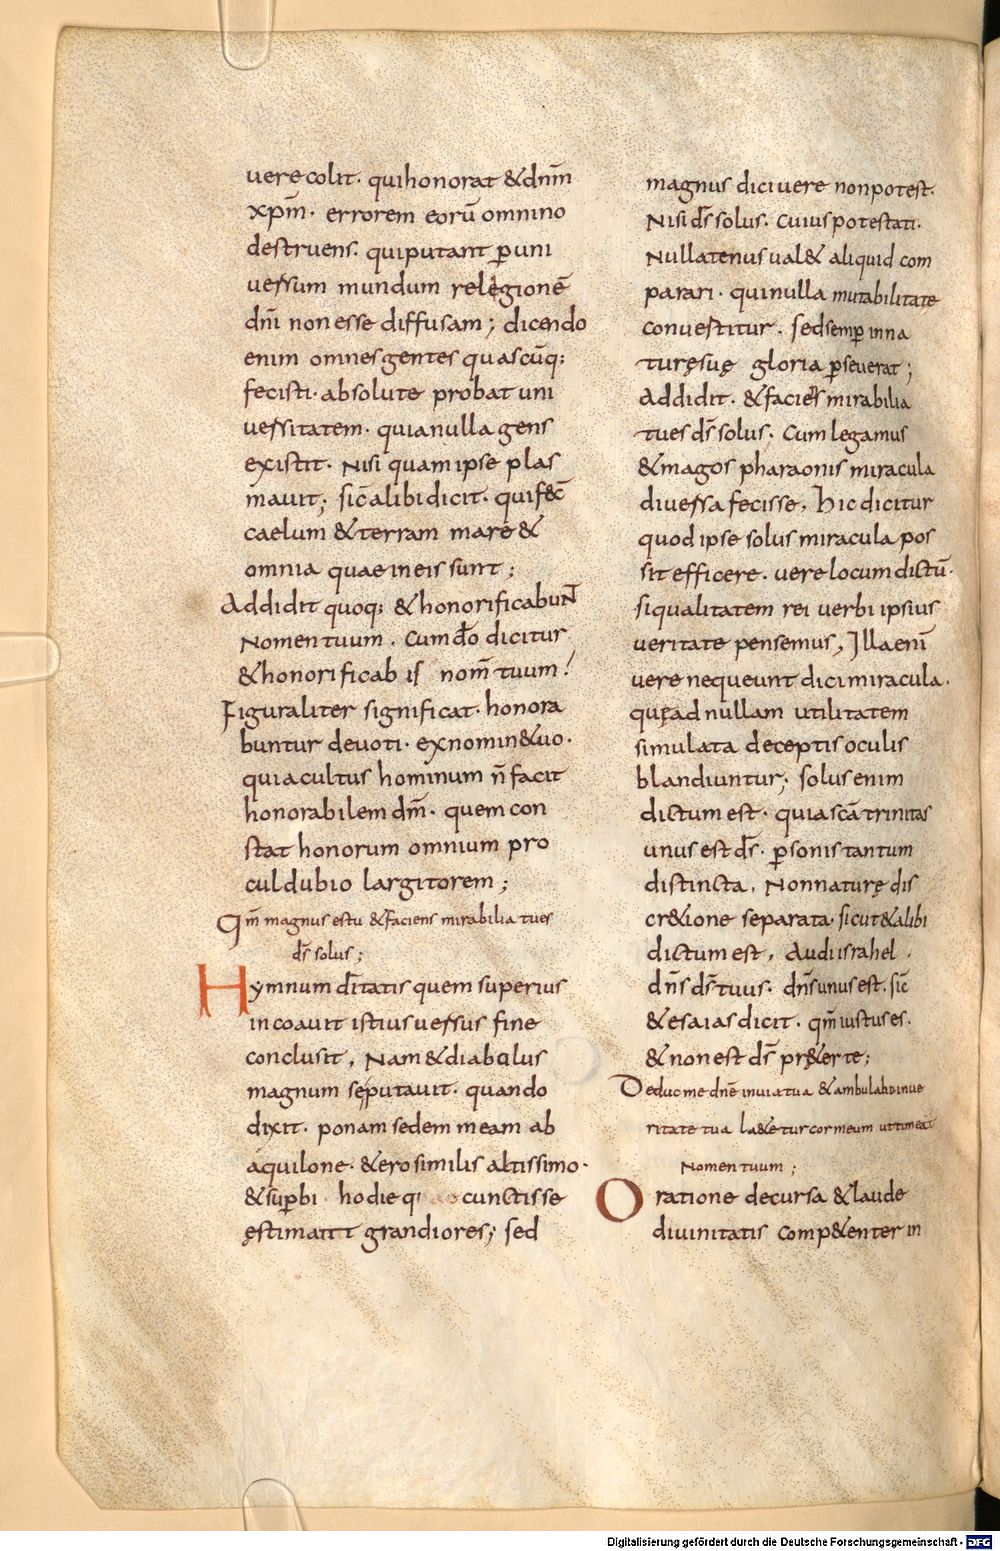 vere colit· qui honorat & dn̄m
xp̄m· errorem eorū omnino
destruens· qui putant ꝑ uni
versum mundum relegionē
dn̄i non esse diffusam; dicendo
enim omnes gentes quascūq;
fecisti· absolute probat uni
versitatem· quia nulla gens
existit· Nisi quam ipse plas
mavit; sic̄ alibi dicit· qui fec̄
caelum & terram mare &
omnia quae in eis sunt;
Addidit quoq; & honorificabuN̄
Nomen tuum· Cum do̅ dicitur
& honorificab is nom̄ tuum!
Figuraliter significat· honora
buntur devoti· ex nomin& uo·
quia cultus hominum n̄ facit
honorabilem dm̄· quem con
stat honorum omnium pro
cul dubio largitorem;
Qm̄ magnus es tu & faciens mirabilia tu es
ds̄ solus;
Hymnum d̄itatis quem superius
incoavit istius versus fine
conclusit, Nam & diabolus
magnum se putavit· quando
dixit· ponam sedem meam ab
aquilone· & ero similis altissimo·
& suꝑbi hodie q cunctis se
ęstimant grandiores; sed
magnus dici vere non potest·
Nisi ds̄ solus· Cuius potestati·
Nullatenus val& aliquid com
parari· qui nulla mutabilitate
convestitur· sed semꝑ in na
turę suę gloria ꝑseverat;
Addidit· & faciens mirabilia
tu es ds̄ solus· Cum legamus
& magos pharaonis miracula
diversa fecisse, hic dicitur
quod ipse solus miracula pos
sit efficere· vere locum dictū·
si qualitatem rei verbi ipsius
veritate pensemus, Illa enī
vere nequeunt dici miracula·
quę ad nullam utilitatem
simulata deceptis oculis
blandiuntur; solus enim
dictum est· quia scā trinitas
unus est ds̄· ꝑsonis tantum
distincta, Non naturę dis
cr&ione separata· sicut & alibi
dictum est, Audi israhel·
dn̄s ds̄ tuus· dn̄s unus est· sic̄
& esaias dicit· qm̄ iustus es·
& non est ds̄ pr&er te;
Deduc me dnē in via tua & ambulabo in ve
ritate tua la&etur cor meum ut timeat
Nomen tuum;
Oratione decursa & laude
divinitatis Comp&enter in
Digitalisierung gefördert durch die Deutsche Forschungsgemeinschaft - DFG